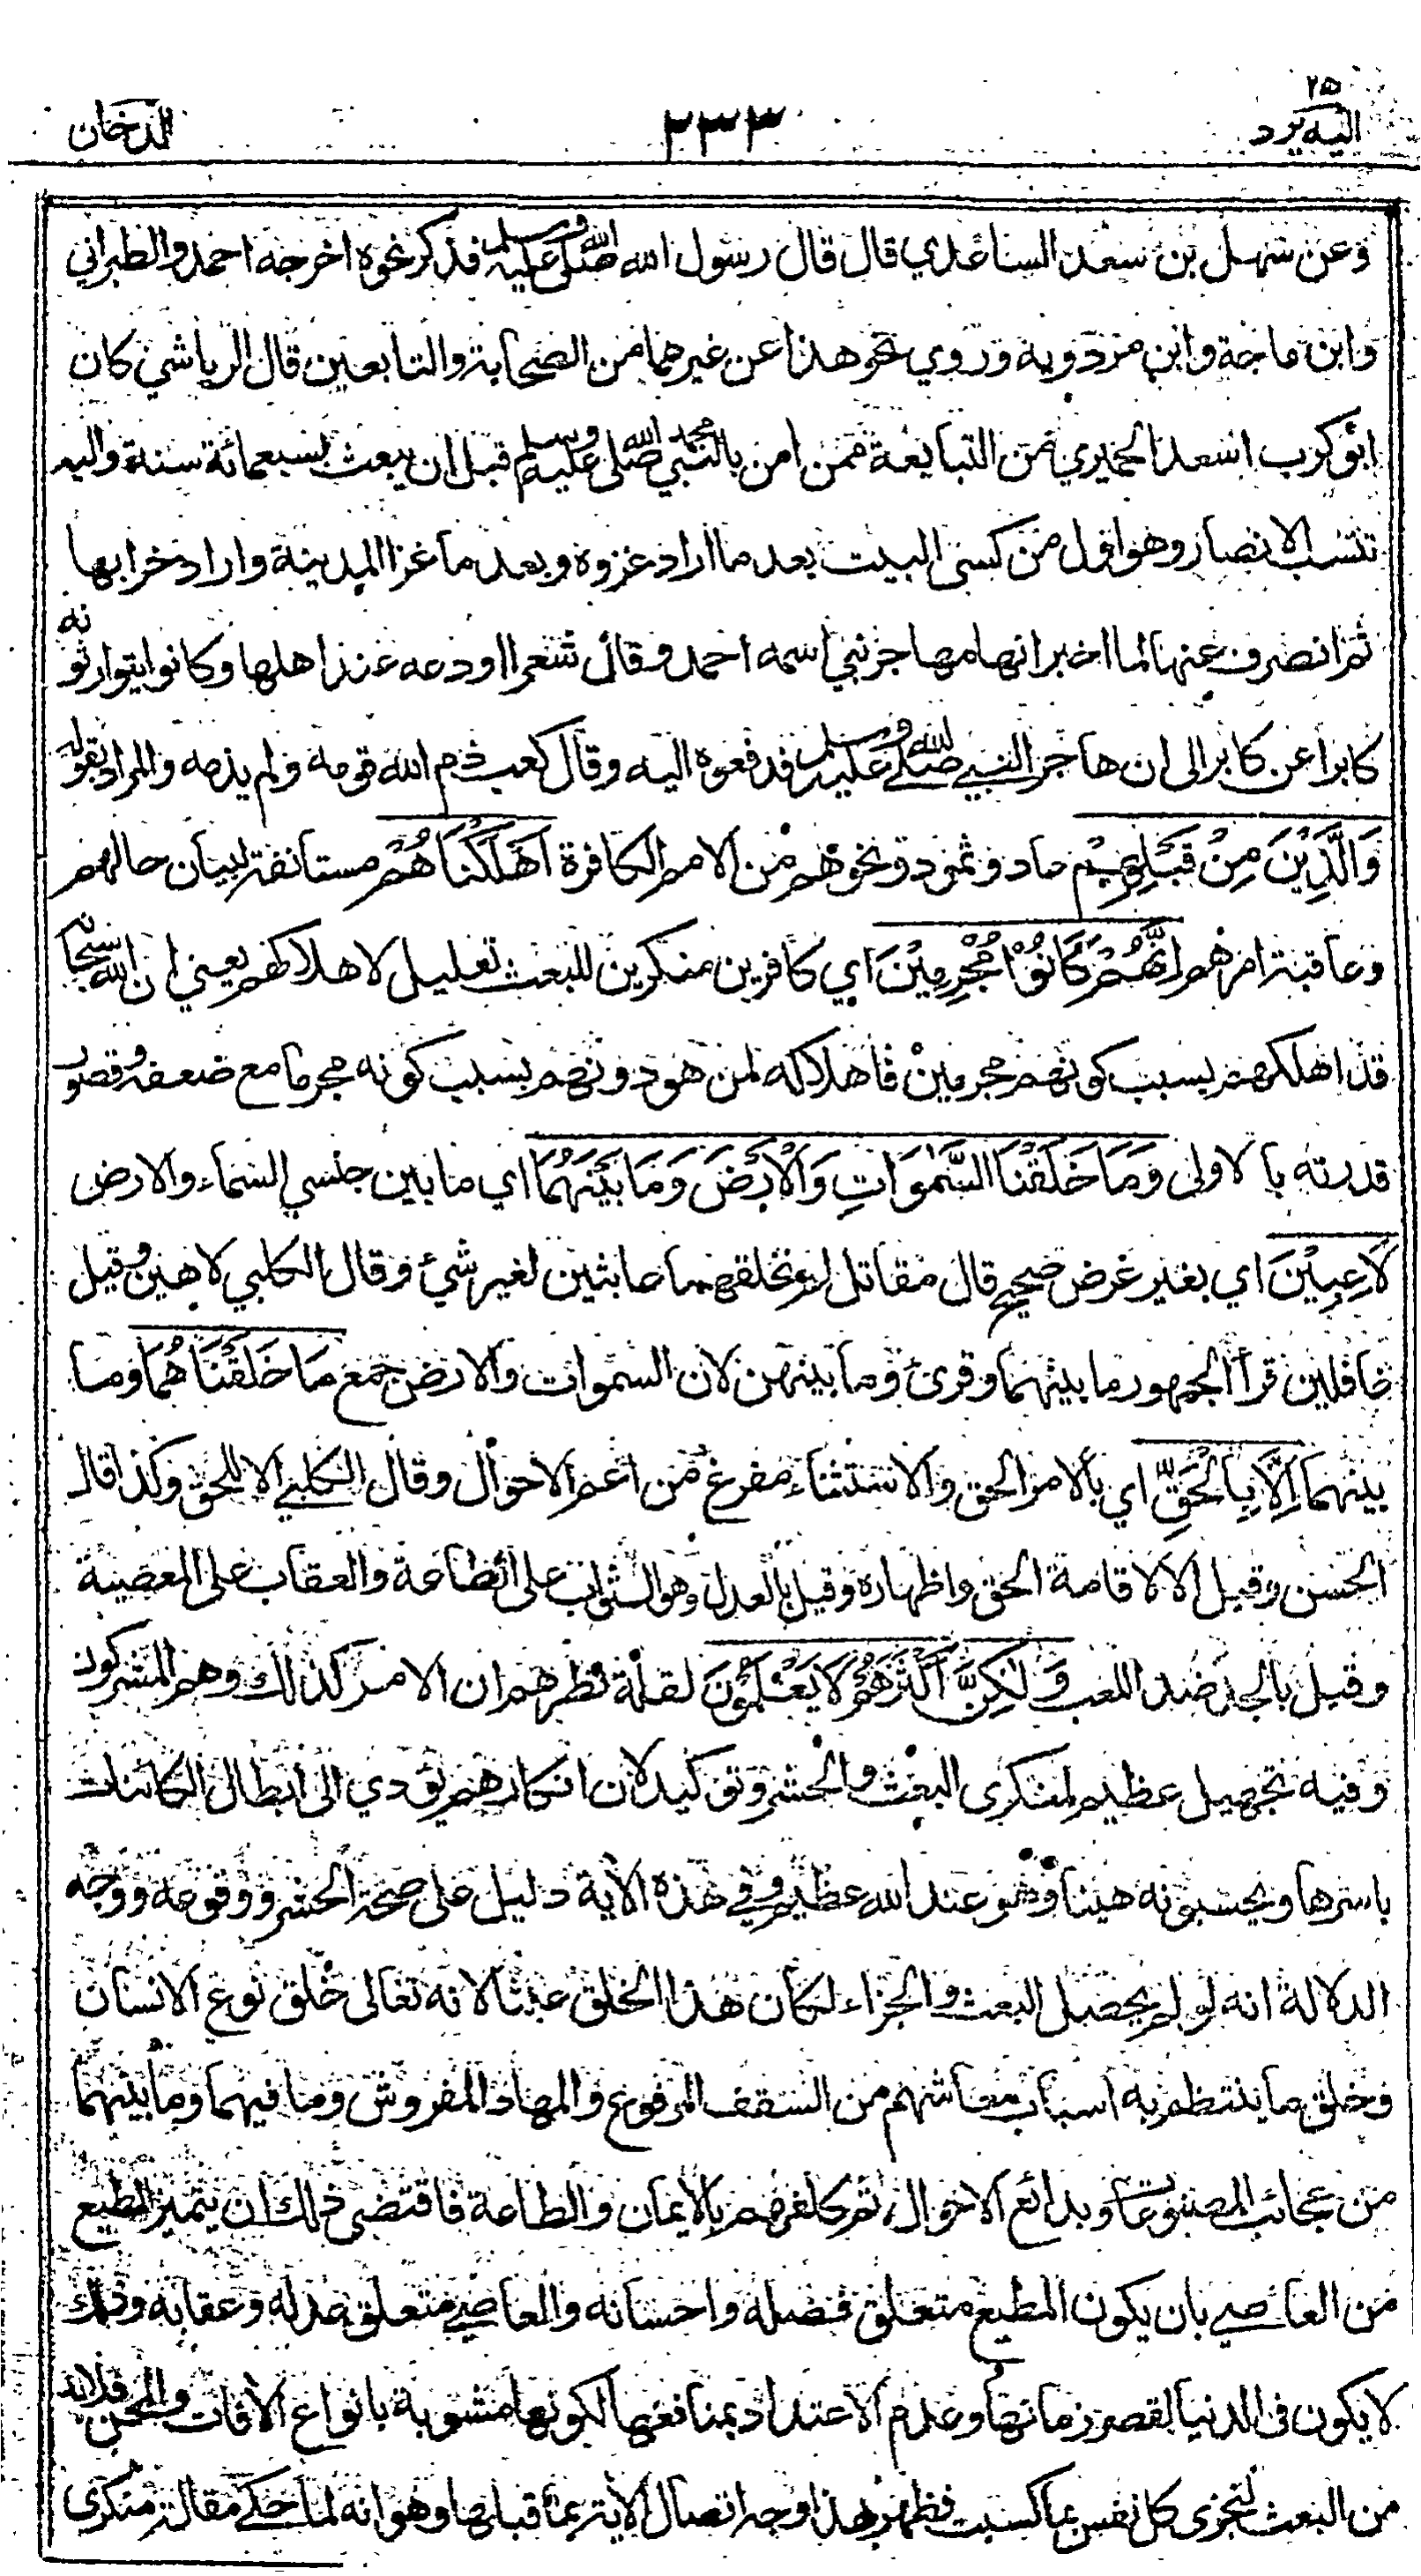 ٢٥
اليه يرد
٢٣٣
الدخان
وعن سهل بن سعد الساعدي قال قال رسول الله صلى الله عليه وسلم فذكر نحوه اخرجه احمد والطبراني
وابن ماجة وابن مردويه وروي نحو هذا عن غيرهما من الصحابة والتابعين قال الرياشي كان
ابو كرب اسعد الحميري من التبايعة ممن امن بالنبي محمد صلى الله عليه وسلم قبل ان يبعث بسبعمائة سنة واليه
تنتسب الانصار وهو اول من كسى البيت بعد ما اراد غزوه وبعد ما غزا المدينة واراد خرابها
ثم انصرف عنها لما اخبر انها مهاجر نبي اسمه احمد وقال شعرا اودعه عند اهلها وكانوا يتوارثونه
كابرا عن كابر الى ان هاجر النبي صلى الله عليه وسلم فدفعوه اليه وقال كعب ذم الله قومه ولم يذمه والمراد بقوله
وَالَّذِيْنَ مِنْ قَبْلِهِمْ عاد وثمود ونحوهم من الامم الكافرة اَهْلَكْنَاهُمْ مستانفة لبيان حالهم
وعاقبة امرهم اِنَّهُمْ كَانُوْا مُجْرِمِيْنَ اي كافرين منكرين للبعث تعليل لاهلاكهم يعني ان الله سبحانه
قد اهلكهم بسبب كونهم مجرمين فاهلاكه لمن هو دونهم بسبب كونه مجرما مع ضعفه وقصور
قدرته بالاولى وَمَا خَلَقْنَا السَّمٰوَاتِ وَالْاَرْضَ وَمَا بَيْنَهُمَا اي ما بين جنسي السماء والارض
لَاعِبِيْنَ اي بغير غرض صحيح قال مقاتل لم نخلقهما عابثين لغير شيء وقال الكلبي لاهين وقيل
غافلين قرأ الجمهور ما بينهما وقرئ وما بينهن لان السموات والارض جمع مَا خَلَقْنَاهُمَا وما
بينهما اِلَّا بِالْحَقِّ اي بالامر الحق والاستثناء مفرغ من اعم الاحوال وقال الكلبي الا للحق وكذا قال
الحسن وقيل الا لاقامة الحق واظهاره وقيل بالعدل وهو الثواب على الطاعة والعقاب على المعصية
وقيل بالجد ضد اللعب وَلٰكِنَّ اَكْثَرَهُمْ لَا يَعْلَمُوْنَ لقلة نظرهم ان الامر كذلك وهم المشركون
وفيه تجهيل عظيم لمنكرى البعث والحشر وتوكيد لان انكارهم يؤدي الى ابطال الكائنات
باسرها ويحسبونه هينا وهو عند الله عظيم وفي هذه الاية دليل على صحة الحشر ووقوعه ووجه
الدلالة انه لو لم يحصل البعث والجزاء لكان هذا الخلق عبثا لانه تعالى خلق نوع الانسان
وخلق ما ينتظم به اسباب معاشهم من السقف المرفوع والمهاد المفروش وما فيهما وما بينهما
من عجائب المصنوعات وبدائع الاحوال ثم كلفهم بالايمان والطاعة فاقتضى ذلك ان يتميز المطيع
من العاصي بان يكون المطيع متعلق فضله واحسانه والعاصي متعلق عدله وعقابه وذلك
لا يكون فى الدنيا لقصر زمانها وعدم الاعتداد بمنافعها لكونها مشوبة بانواع الافات والمحن فلابد
من البعث لتجزى كل نفس بما كسبت فظهر بهذا وجه اتصال الاية بما قبلها وهو انه لما حكى مقالة منكرى